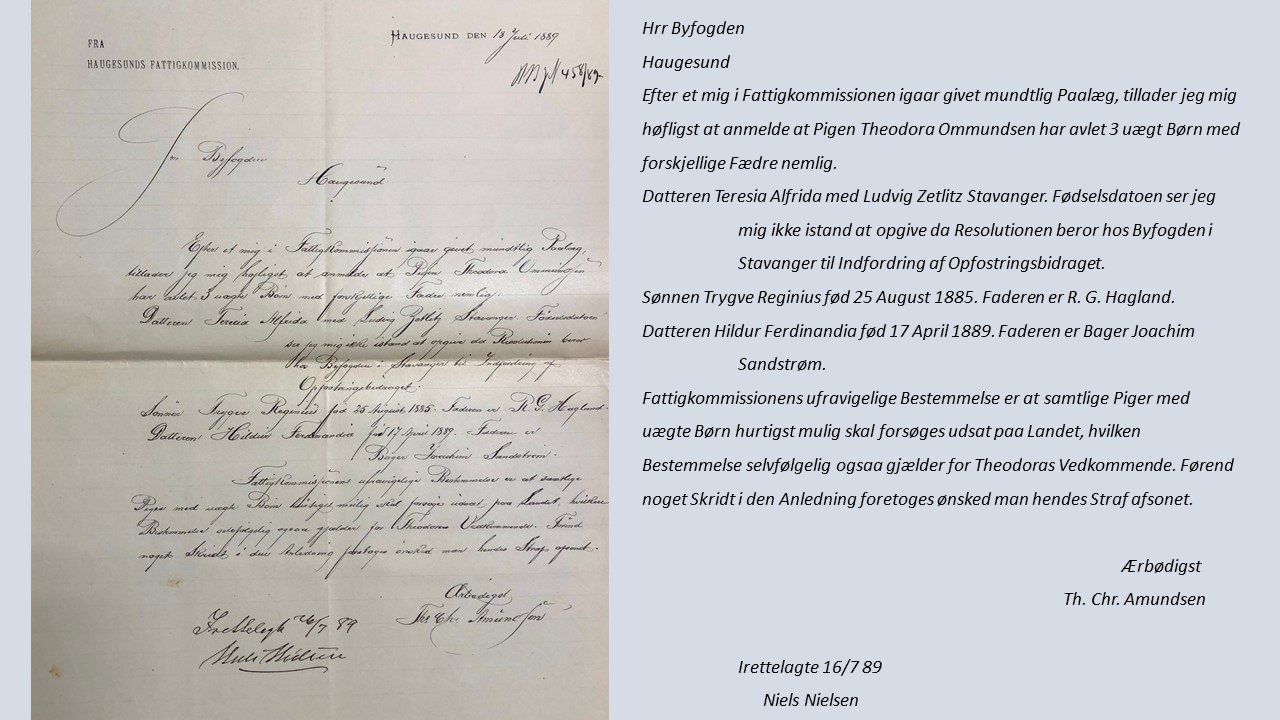 FRA
HAUGESUNDS FATTIGKOMMISSION.
HAUGESUND DEN Juli 1889
458/89
Hrr Byfogden
Haugesund
Efter et mig i Fattigkommissionen igaar givet mundtlig Paalæg,
tillader jeg mig høfligst at anmelde at Pigen Theodora Ommundsen
har avlet 3 uægte Børn med forskjellige Fædre nemlig.
Datteren Teresia Alfrida med Ludvig Zetlitz Stavanger. Fødselsdatoen
ser jeg mig ikke istand at opgive da Resolutionen beror
hos Byfogden i Stavanger til Indfordring af
Opfostringsbidraget.
Sønnen Trygve Reginius fød 25 August 1885. Faderen er R. G. Hagland.
Datteren Hildur Ferdinandia fød 17 April 1889. Faderen er
Bager Joachim Sandstrøm.
Fattigkommissionens ufravigelige Bestemmelse er at samtlige
Piger med uægte Børn hurtigst mulig skal forsøges udsat paa Landet, hvilken
Bestemmelse selvfølgelig ogsaa gjælder for Theodoras Vedkommende. Førend
noget Skridt i den Anledning foretoges ønsked man hendes Straf afsonet.
Ærbødigst
Th. Chr. Amundsen
Irettelagte /7 89
Niels Nielsen
Hrr Byfogden
Haugesund
Efter et mig i Fattigkommissionen igaar givet mundtlig Paalæg, tillader jeg mig
høfligst at anmelde at Pigen Theodora Ommundsen har avlet 3 uægt Børn med
forskjellige Fædre nemlig.
Datteren Teresia Alfrida med Ludvig Zetlitz Stavanger. Fødselsdatoen ser jeg
mig ikke istand at opgive da Resolutionen beror hos Byfogden i
Stavanger til Indfordring af Opfostringsbidraget.
Sønnen Trygve Reginius fød 25 August 1885. Faderen er R. G. Hagland.
Datteren Hildur Ferdinandia fød 17 April 1889. Faderen er Bager Joachim
Sandstrøm.
Fattigkommissionens ufravigelige Bestemmelse er at samtlige Piger med
uægte Børn hurtigst mulig skal forsøges udsat paa Landet, hvilken
Bestemmelse selvfølgelig ogsaa gjælder for Theodoras Vedkommende. Førend
noget Skridt i den Anledning foretoges ønsked man hendes Straf afsonet.
Ærbødigst
Th. Chr. Amundsen
Irettelagte 16/7 89
Niels Nielsen